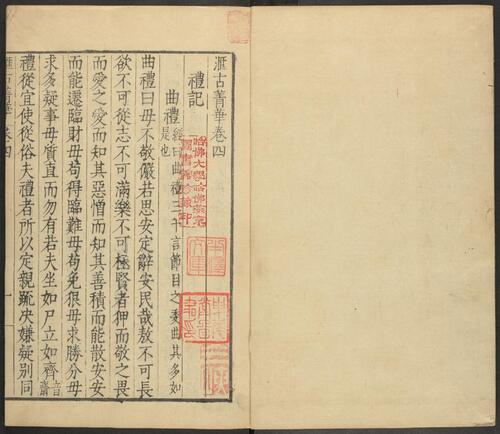 滙古菁華卷四
禮記
曲禮 經曰曲禮三千言節目之委曲其多如是也
曲禮曰毋不敬儼若思安定辭安民哉敖不可長
欲不可從志不可滿樂不可極賢者狎而敬之畏
而愛之愛而知其惡憎而知其善積而能散安安
而能遷臨財毋苟得臨難毋苟免狠毋求勝分毋
求多疑事毋質直而勿有若夫坐如尸立如齊音齋
禮從宜使從俗夫禮者所以定親踈决嫌疑別同
滙古菁華 卷四 一
哈佛大學哈佛燕京
圖書館珍藏印